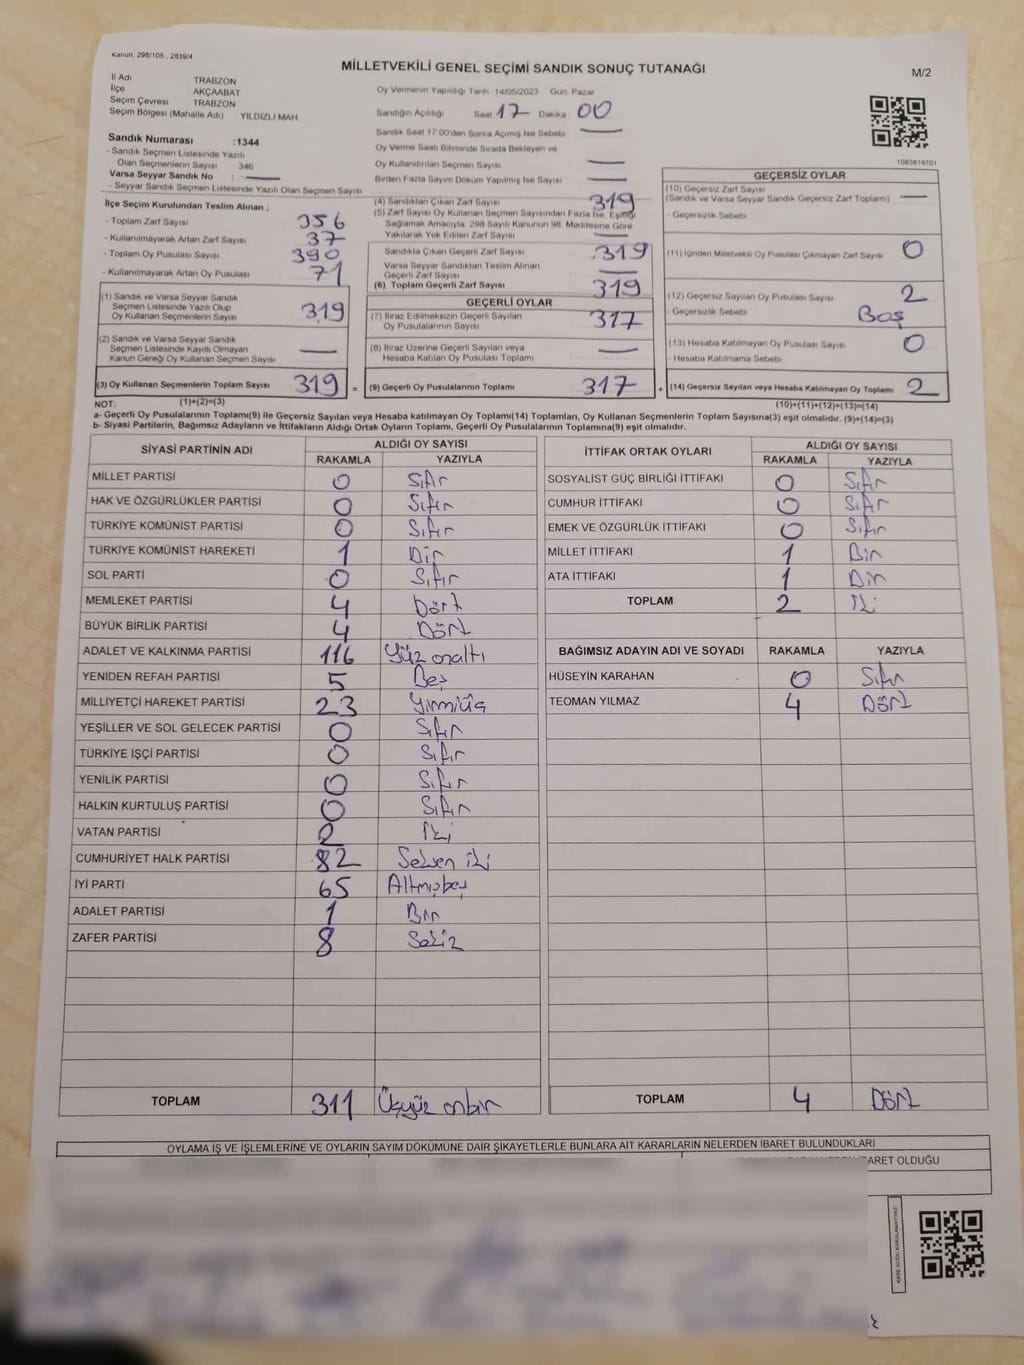 Kanun, 298/105 , 2839/4
MİLLETVEKİLİ GENEL SEÇİMİ SANDIK SONUÇ TUTANAĞI
M/2
İl Adı TRABZON
İlçe AKÇAABAT
Seçim Çevresi TRABZON
Seçim Bölgesi (Mahalle Adı) YILDIZLI MAH.
Oy Vermenin Yapıldığı Tarih 14/05/2023 Gün: Pazar
Sandığın Açıldığı Saat 17 Dakika 00
Sandık Saat 17.00'den Sonra Açılmış İse Sebebi —
Oy Verme Saati Bitiminde Sırada Bekleyen ve
Oy Kullandırılan Seçmen Sayısı —
Birden Fazla Sayım Döküm Yapılmış İse Sayısı —
1083619701
Sandık Numarası :1344
- Sandık Seçmen Listesinde Yazılı
Olan Seçmenlerin Sayısı : 346
Varsa Seyyar Sandık No : —
- Seyyar Sandık Seçmen Listesinde Yazılı Olan Seçmen Sayısı
İlçe Seçim Kurulundan Teslim Alınan ;
- Toplam Zarf Sayısı 356
- Kullanılmayarak Artan Zarf Sayısı 37
- Toplam Oy Pusulası Sayısı 390
- Kullanılmayarak Artan Oy Pusulası 71
(1) Sandık ve Varsa Seyyar Sandık
Seçmen Listesinde Yazılı Olup
Oy Kullanan Seçmenlerin Sayısı 319
(2) Sandık ve Varsa Seyyar Sandık
Seçmen Listesinde Kayıtlı Olmayan
Kanun Gereği Oy Kullanan Seçmen Sayısı —
(3) Oy Kullanan Seçmenlerin Toplam Sayısı 319 =
(4) Sandıktan Çıkan Zarf Sayısı 319
(5) Zarf Sayısı Oy Kullanan Seçmen Sayısından Fazla İse, Eşitliği
Sağlamak Amacıyla, 298 Sayılı Kanunun 98. Maddesine Göre
Yakılarak Yok Edilen Zarf Sayısı —
Sandıkta Çıkan Geçerli Zarf Sayısı 319
Varsa Seyyar Sandıktan Teslim Alınan
Geçerli Zarf Sayısı —
(6) Toplam Geçerli Zarf Sayısı 319
GEÇERLİ OYLAR
(7) İtiraz Edilmeksizin Geçerli Sayılan
Oy Pusulalarının Sayısı 317
(8) İtiraz Üzerine Geçerli Sayılan veya
Hesaba Katılan Oy Pusulası Toplamı —
(9) Geçerli Oy Pusulalarının Toplamı 317 +
GEÇERSİZ OYLAR
(10) Geçersiz Zarf Sayısı
(Sandık ve Varsa Seyyar Sandık Geçersiz Zarf Toplamı) —
- Geçersizlik Sebebi
(11) İçinden Milletvekili Oy Pusulası Çıkmayan Zarf Sayısı 0
(12) Geçersiz Sayılan Oy Pusulası Sayısı 2
- Geçersizlik Sebebi Boş
(13) Hesaba Katılmayan Oy Pusulası Sayısı 0
- Hesaba Katılmama Sebebi
(14) Geçersiz Sayılan veya Hesaba Katılmayan Oy Toplamı 2
NOT: (1)+(2)=(3) (10)+(11)+(12)+(13)=(14)
a- Geçerli Oy Pusulalarının Toplamı(9) ile Geçersiz Sayılan veya Hesaba katılmayan Oy Toplamı(14) Toplamları, Oy Kullanan Seçmenlerin Toplam Sayısına(3) eşit olmalıdır. (9)+(14)=(3)
b- Siyasi Partilerin, Bağımsız Adayların ve İttifakların Aldığı Ortak Oyların Toplamı, Geçerli Oy Pusulalarının Toplamına(9) eşit olmalıdır.
SİYASİ PARTİNİN ADI ALDIĞI OY SAYISI
RAKAMLA YAZIYLA
MİLLET PARTİSİ 0 Sıfır
HAK VE ÖZGÜRLÜKLER PARTİSİ 0 Sıfır
TÜRKİYE KOMÜNİST PARTİSİ 0 Sıfır
TÜRKİYE KOMÜNİST HAREKETİ 1 Bir
SOL PARTİ 0 Sıfır
MEMLEKET PARTİSİ 4 Dört
BÜYÜK BİRLİK PARTİSİ 4 Dört
ADALET VE KALKINMA PARTİSİ 116 Yüz onaltı
YENİDEN REFAH PARTİSİ 5 Beş
MİLLİYETÇİ HAREKET PARTİSİ 23 Yirmiüç
YEŞİLLER VE SOL GELECEK PARTİSİ 0 Sıfır
TÜRKİYE İŞÇİ PARTİSİ 0 Sıfır
YENİLİK PARTİSİ 0 Sıfır
HALKIN KURTULUŞ PARTİSİ 0 Sıfır
VATAN PARTİSİ 2 İki
CUMHURİYET HALK PARTİSİ 82 Seksen iki
İYİ PARTİ 65 Altmışbeş
ADALET PARTİSİ 1 Bir
ZAFER PARTİSİ 8 Sekiz
TOPLAM 311 Üçyüz onbir
İTTİFAK ORTAK OYLARI ALDIĞI OY SAYISI
RAKAMLA YAZIYLA
SOSYALİST GÜÇ BİRLİĞİ İTTİFAKI 0 Sıfır
CUMHUR İTTİFAKI 0 Sıfır
EMEK VE ÖZGÜRLÜK İTTİFAKI 0 Sıfır
MİLLET İTTİFAKI 1 Bir
ATA İTTİFAKI 1 Bir
TOPLAM 2 İki
BAĞIMSIZ ADAYIN ADI VE SOYADI RAKAMLA YAZIYLA
HÜSEYİN KARAHAN 0 Sıfır
TEOMAN YILMAZ 4 Dört
TOPLAM 4 Dört
OYLAMA İŞ VE İŞLEMLERİNE VE OYLARIN SAYIM DÖKÜMÜNE DAİR ŞİKAYETLERLE BUNLARA AİT KARARLARIN NELERDEN İBARET BULUNDUKLARI
İBARET OLDUĞU
KARE KODU KARALAMAYINIZ!